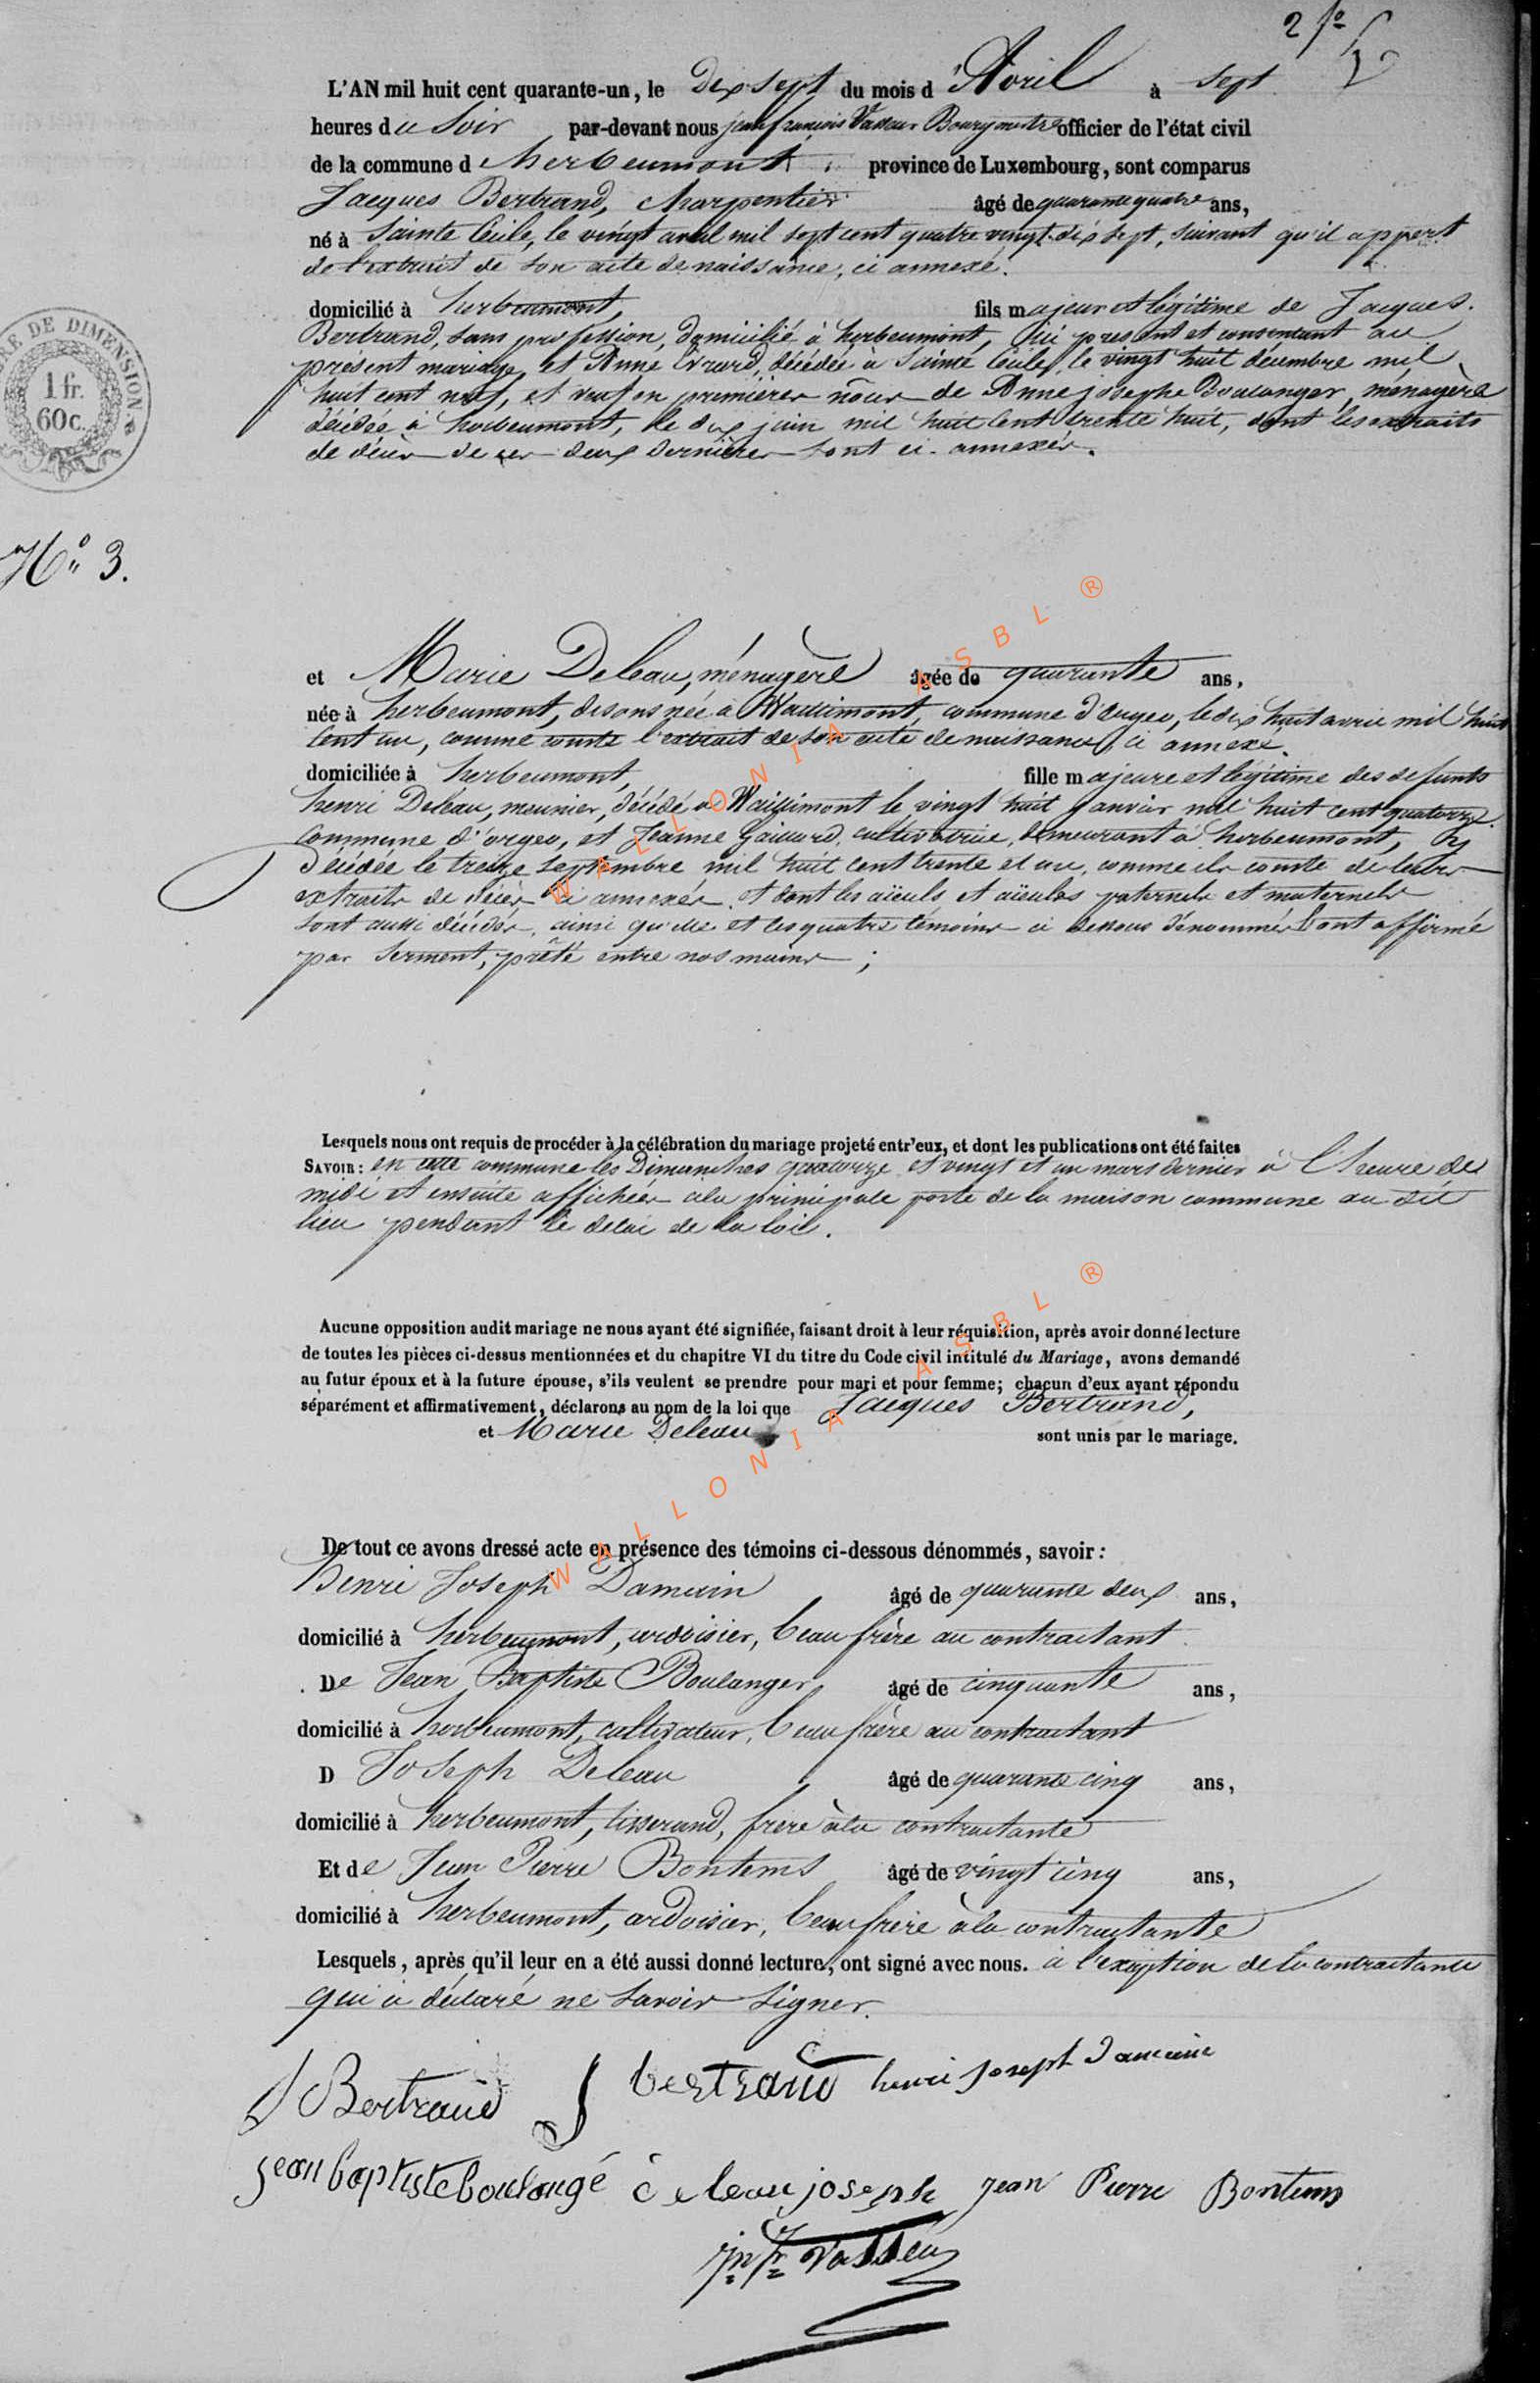 2 fo
L'AN mil huit cent quarante-un, le Dix sept du mois d'Avril à sept
heures du Soir par-devant nous jean françois Vasseur Bourgmestre officier de l'état civil
de la commune d'herbeumont province de Luxembourg, sont comparus
Jacques Bertrand, charpentier âgé de quarante quatre ans,
né à Sainte Cécile, le vingt avril mil sept cent quatre vingt dix sept, suivant qu'il appert
de l'extrait de son acte de naissance, ci annexé.
domicilié à herbeumont, fils majeur et légitime de Jacques
Bertrand, sans profession, domicilié à herbeumont, ici présent et consentant au
présent mariage, et Anne Evrard, décédée à Sainte Cécile, le vingt huit décembre mil
huit cent neuf, et veuf en premières nôces de Anne josephe Boulanger, ménagère
décédée à herbeumont, le dix juin mil huit cent trente huit, dont les extraits
de décès de ces deux dernières sont ci-annexés.
RE DE DIMENSION
1 fr.
60c.
No 3.
et Marie Deleau, ménagère âgée de quarante ans,
née à herbeumont, disons née à Waillimont, commune d'orgeo, le dix huit avril mil huit
cent un, comme conste l'extrait de son acte de naissance, ci annexé.
domiciliée à herbeumont, fille majeure et légitime des defunts
henri Deleau, meunier, décédé à Waillimont le vingt huit janvier mil huit cent quatorze.
commune d'orgeo, et Jeanne Gaillard, cultivatrice, demeurant à herbeumont, y
décédée le treize septembre mil huit cent trente et un, comme ils conste de leurs
extraits de décès ci annexés, et dont les aïeuls et aïeules paternels et maternels
sont aussi décédés, ainsi qu'elle et les quatre témoins ci dessous dénommés l'ont affirmé
par serment, prêté entre nos mains ;
Lesquels nous ont requis de procéder à la célébration du mariage projeté entr'eux, et dont les publications ont été faites
SAVOIR : en cette commune les Dimanches quatorze et vingt et un mars dernier à l'heure de
midi et ensuite affichées à la principale porte de la maison commune au dit
lieu pendant le délai de la loi.
Aucune opposition audit mariage ne nous ayant été signifiée, faisant droit à leur réquisition, après avoir donné lecture
de toutes les pièces ci-dessus mentionnées et du chapitre VI du titre du Code civil intitulé du Mariage, avons demandé
au futur époux et à la future épouse, s'ils veulent se prendre pour mari et pour femme; chacun d'eux ayant répondu
séparément et affirmativement, déclarons au nom de la loi que Jacques Bertrand,
et Marie Deleau sont unis par le mariage.
De tout ce avons dressé acte en présence des témoins ci-dessous dénommés, savoir :
Henri Joseph Damain âgé de quarante deux ans,
domicilié à herbeumont, ardoisier, beau frère au contractant
De Jean Baptiste Boulanger âgé de cinquante ans,
domicilié à herbeumont, cultivateur, beau frère au contractant
D Joseph Deleau âgé de quarante cinq ans,
domicilié à herbeumont, tisserand, frère à la contractante
Et de Jean Pierre Bontems âgé de vingt cinq ans,
domicilié à herbeumont, ardoisier, beau frère à la contractante
Lesquels, après qu'il leur en a été aussi donné lecture, ont signé avec nous. à l'exeption de la contractante
qui a déclaré ne savoir signer.
J Bertrand J bertrand henri joseph
jean baptiste boulangé deleau joseph jean Pierre Bontems
jn fr Vasseur
WALLONIA ASBL ®
WALLONIA ASBL ®